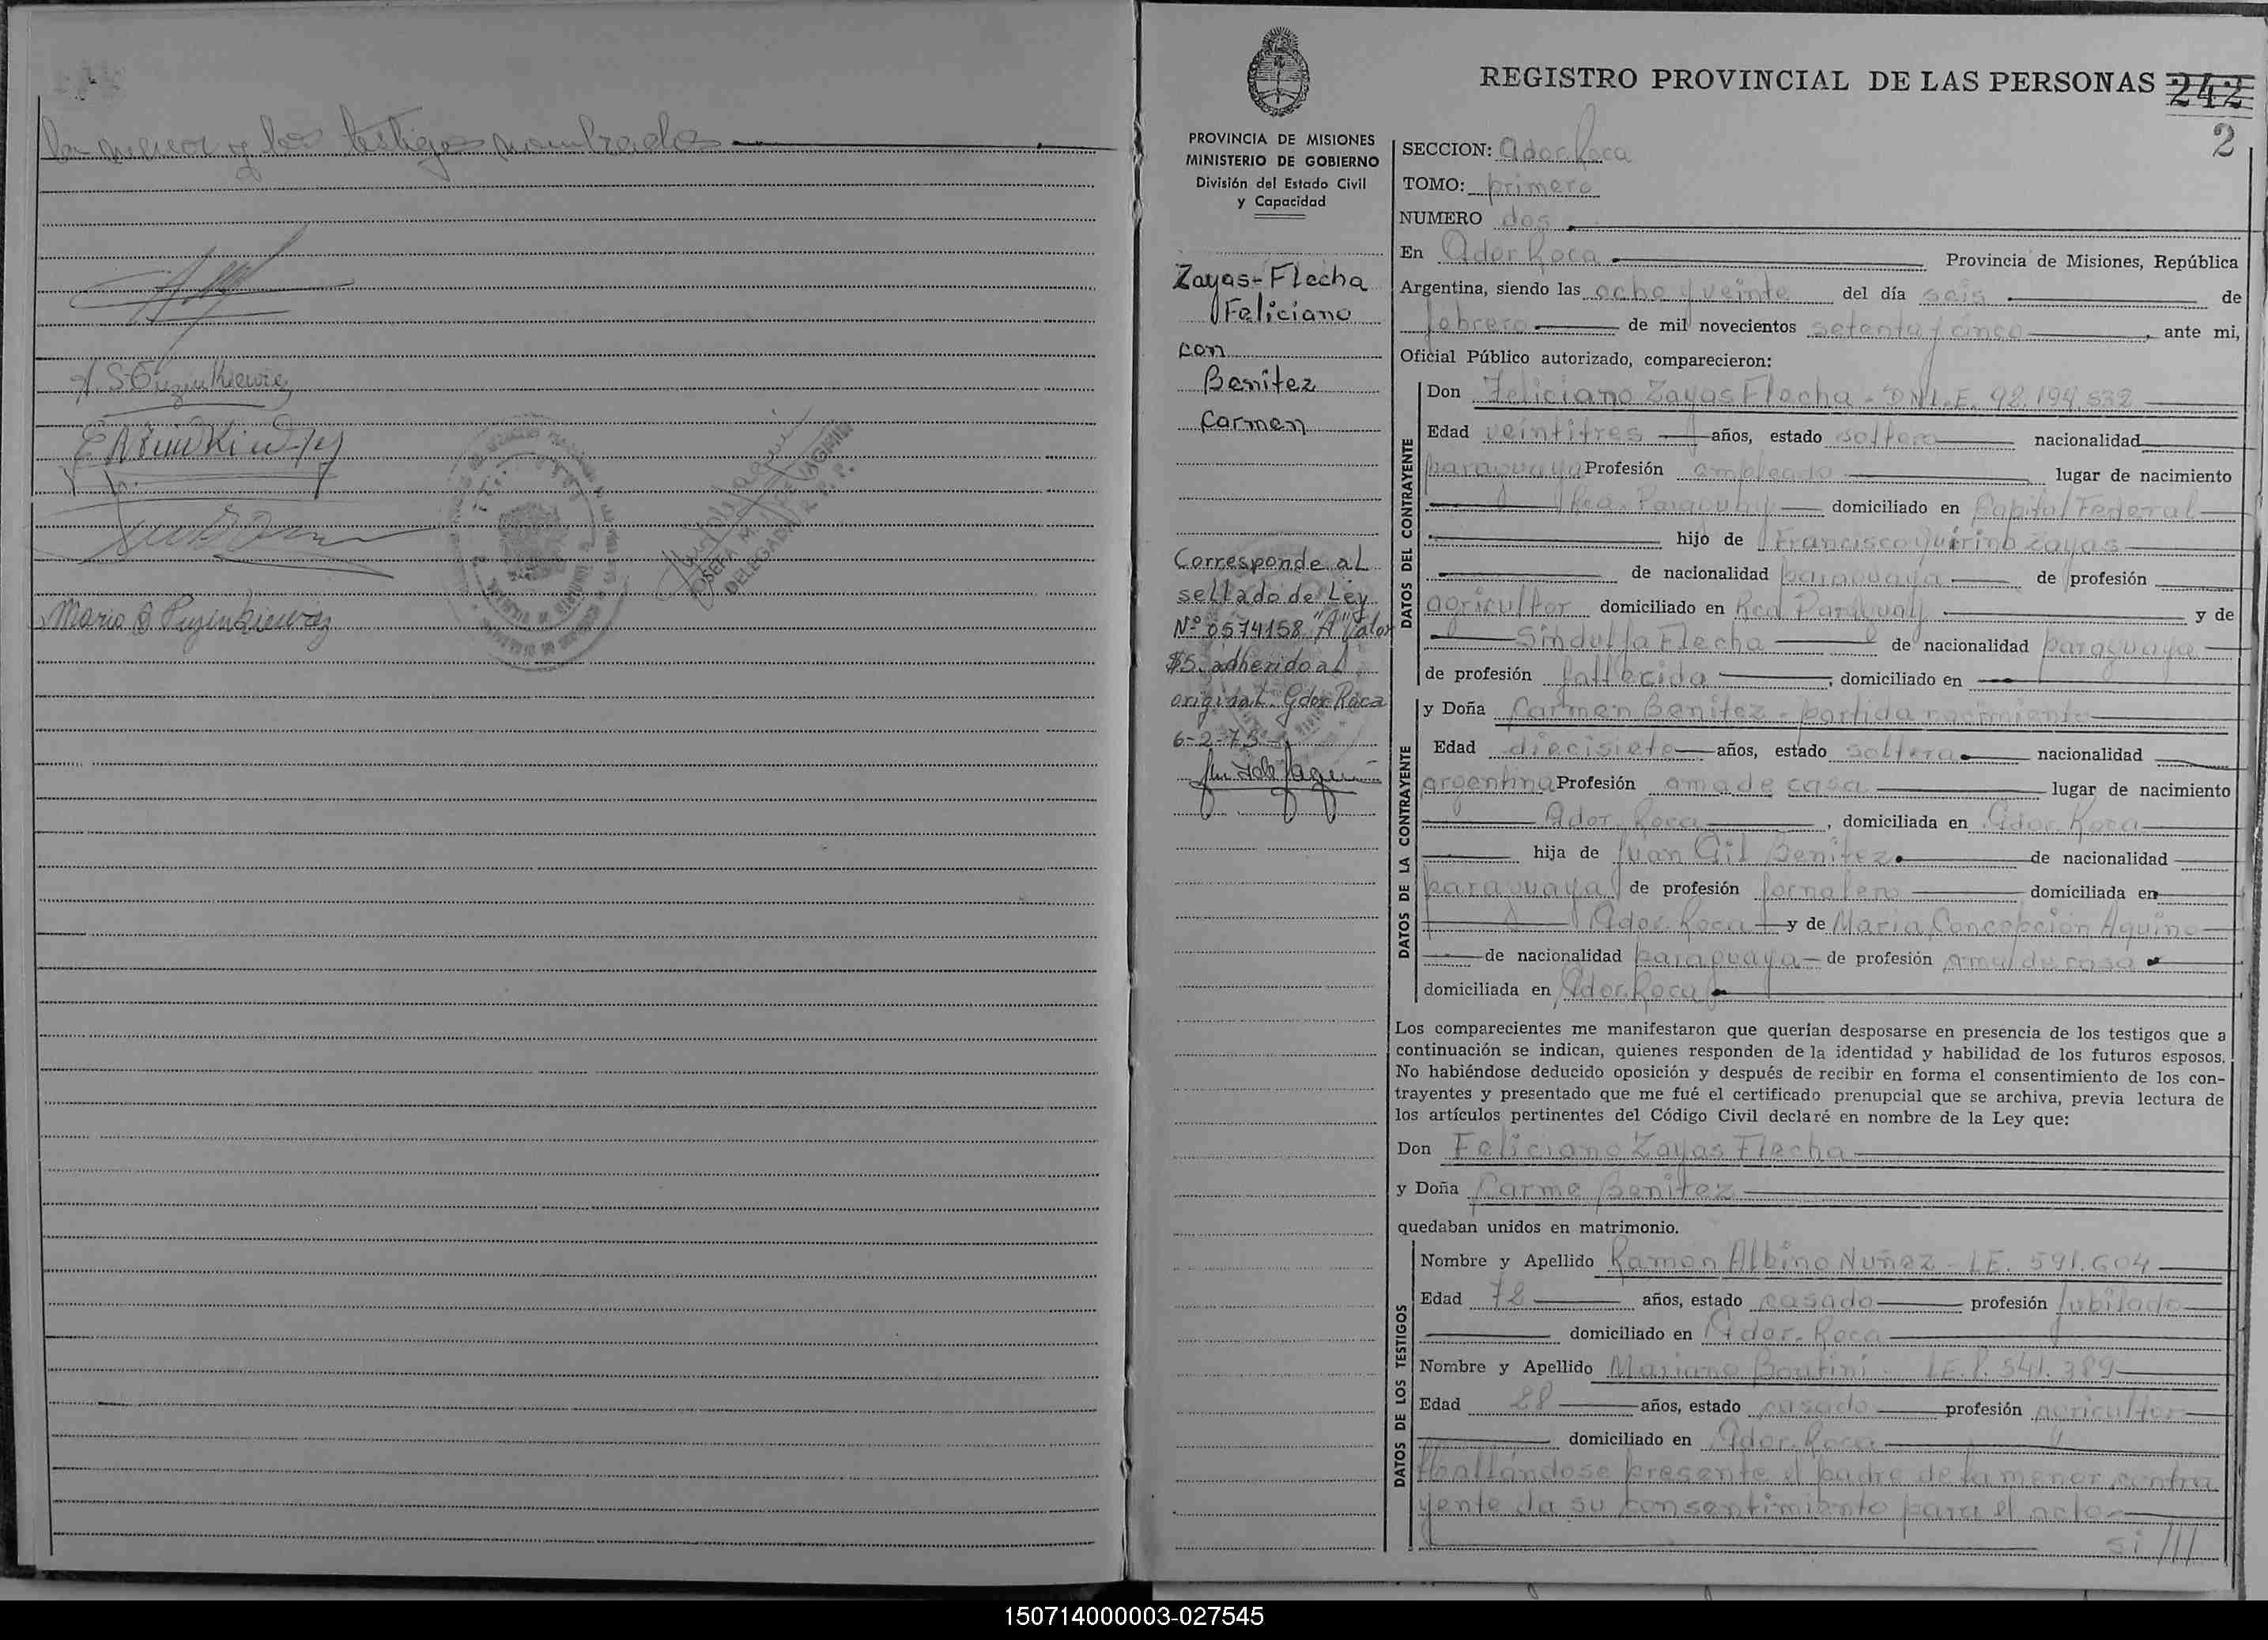 la menor y los testigos nombrados
Mario
JOSEFA M. DE JAGUIN
DELEGADA R. P. P.
REGISTRO PROVINCIAL DE LAS PERSONAS 242
2
PROVINCIA DE MISIONES
MINISTERIO DE GOBIERNO
División del Estado Civil
y Capacidad
Zayas-Flecha
Feliciano
con
Benitez
Carmen
Corresponde al
sellado de Ley
Nº 0574158 "A" Valor
$5. adherido al
original. Gdor Roca
6-2-75
SECCION: Gdor. Roca
TOMO: primero
NUMERO dos
En Gdor Roca Provincia de Misiones, República
Argentina, siendo las ocho y veinte del día seis de
febrero de mil novecientos setenta y cinco, ante mi,
Oficial Público autorizado, comparecieron:
DATOS DEL CONTRAYENTE
Don Feliciano Zayas Flecha - DNI.E. 92.194.532
Edad veintitres años, estado soltero nacionalidad
paraguaya Profesión empleado lugar de nacimiento
Rca. Paraguay domiciliado en Capital Federal
hijo de Francisco Quirino Zayas
de nacionalidad paraguaya de profesión
agricultor domiciliado en Rca Paraguay y de
Sindulfa Flecha de nacionalidad paraguaya
de profesión fallecida, domiciliado en
DATOS DE LA CONTRAYENTE
y Doña Carmen Benitez - partida nacimiento
Edad diecisiete años, estado soltera nacionalidad
argentina Profesión ama de casa lugar de nacimiento
Gdor. Roca, domiciliada en Gdor. Roca
hija de Juan Gil Benitez de nacionalidad
paraguaya de profesión jornalero domiciliada en
Gdor. Roca y de Maria Concepcion Aquino
de nacionalidad paraguaya de profesión ama de casa
domiciliada en Gdor. Roca
Los comparecientes me manifestaron que querían desposarse en presencia de los testigos que a
continuación se indican, quienes responden de la identidad y habilidad de los futuros esposos.
No habiéndose deducido oposición y después de recibir en forma el consentimiento de los con-
trayentes y presentado que me fué el certificado prenupcial que se archiva, previa lectura de
los artículos pertinentes del Código Civil declaré en nombre de la Ley que:
Don Feliciano Zayas Flecha
y Doña Carme Benitez
quedaban unidos en matrimonio.
DATOS DE LOS TESTIGOS
Nombre y Apellido Ramon Albino Nuñez - LE. 591.604
Edad 72 años, estado casado profesión jubilado
domiciliado en Gdor. Roca
Nombre y Apellido Mariano
Edad 28 años, estado casado profesión agricultor
domiciliado en Gdor. Roca
Hallándose presente el padre de la menor contra
yente da su consentimiento para el acto
si ///
150714000003-027545